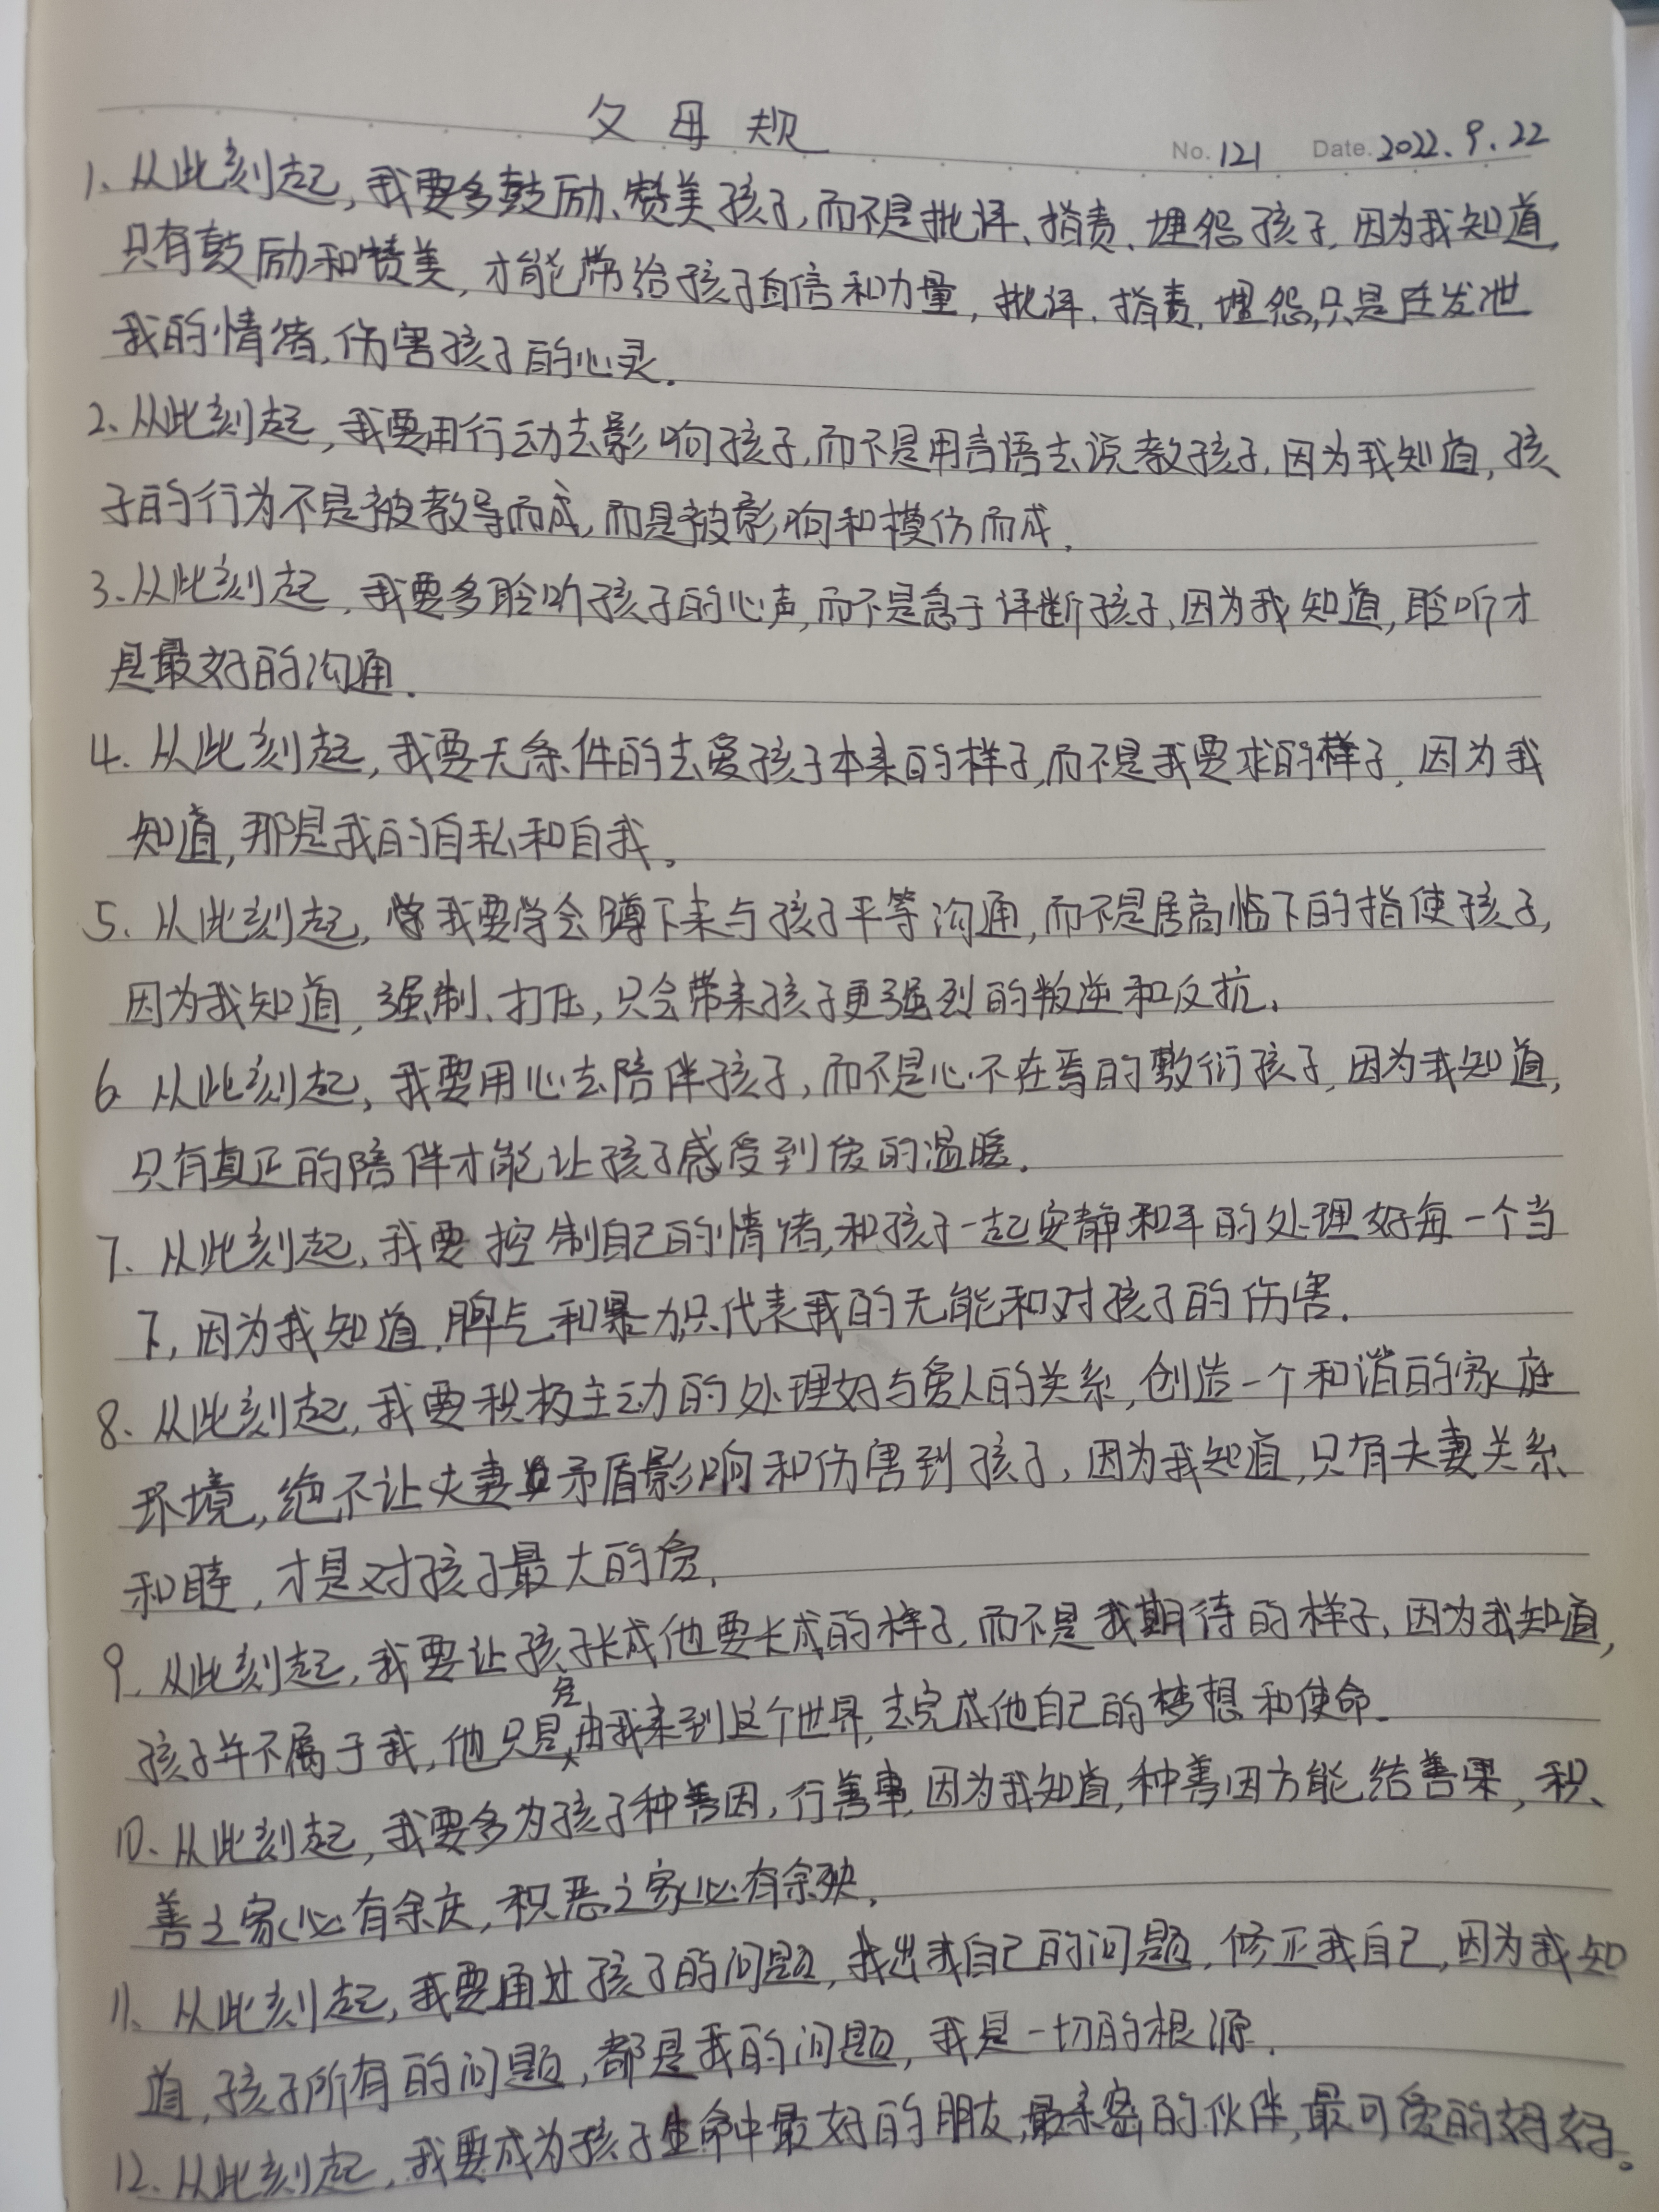 父母规
No. 121 Date. 2022.9.22
1、从此刻起,我要多鼓励、赞美孩子,而不是批评、指责、埋怨孩子,因为我知道,
只有鼓励和赞美,才能带给孩子自信和力量,批评、指责、埋怨,只是在发泄
我的情绪,伤害孩子的心灵.
2、从此刻起,我要用行动去影响孩子,而不是用言语去说教孩子,因为我知道,孩
子的行为不是被教导而成,而是被影响和模仿而成.
3、从此刻起,我要多聆听孩子的心声,而不是急于评断孩子,因为我知道,聆听才
是最好的沟通.
4.从此刻起,我要无条件的去爱孩子本来的样子,而不是我要求的样子,因为我
知道,那是我的自私和自我。
5.从此刻起,我要学会蹲下来与孩子平等沟通,而不是居高临下的指使孩子,
因为我知道,强制、打压,只会带来孩子更强烈的叛逆和反抗.
6 从此刻起,我要用心去陪伴孩子,而不是心不在焉的敷衍孩子,因为我知道,
只有真正的陪伴才能让孩子感受到爱的温暖.
7、从此刻起,我要控制自己的情绪,和孩子一起安静和平的处理好每一个当
下,因为我知道,脾气和暴力,只代表我的无能和对孩子的伤害.
8、从此刻起,我要积极主动的处理好与爱人的关系,创造一个和谐的家庭
环境,绝不让夫妻矛盾影响和伤害到孩子,因为我知道,只有夫妻关系
和睦,才是对孩子最大的爱.
9.从此刻起,我要让孩子长成他要长成的样子,而不是我期待的样子,因为我知道,
孩子并不属于我,他只是经由我来到这个世界,去完成他自己的梦想和使命.
10、从此刻起,我要多为孩子种善因,行善事,因为我知道,种善因方能结善果,积、
善之家必有余庆,积恶之家必有余殃.
11、从此刻起,我要通过孩子的问题,找出我自己的问题,修正我自己,因为我知
道,孩子所有的问题,都是我的问题,我是一切的根源.
12、从此刻起,我要成为孩子生命中最好的朋友,最亲密的伙伴,最可爱的妈妈。